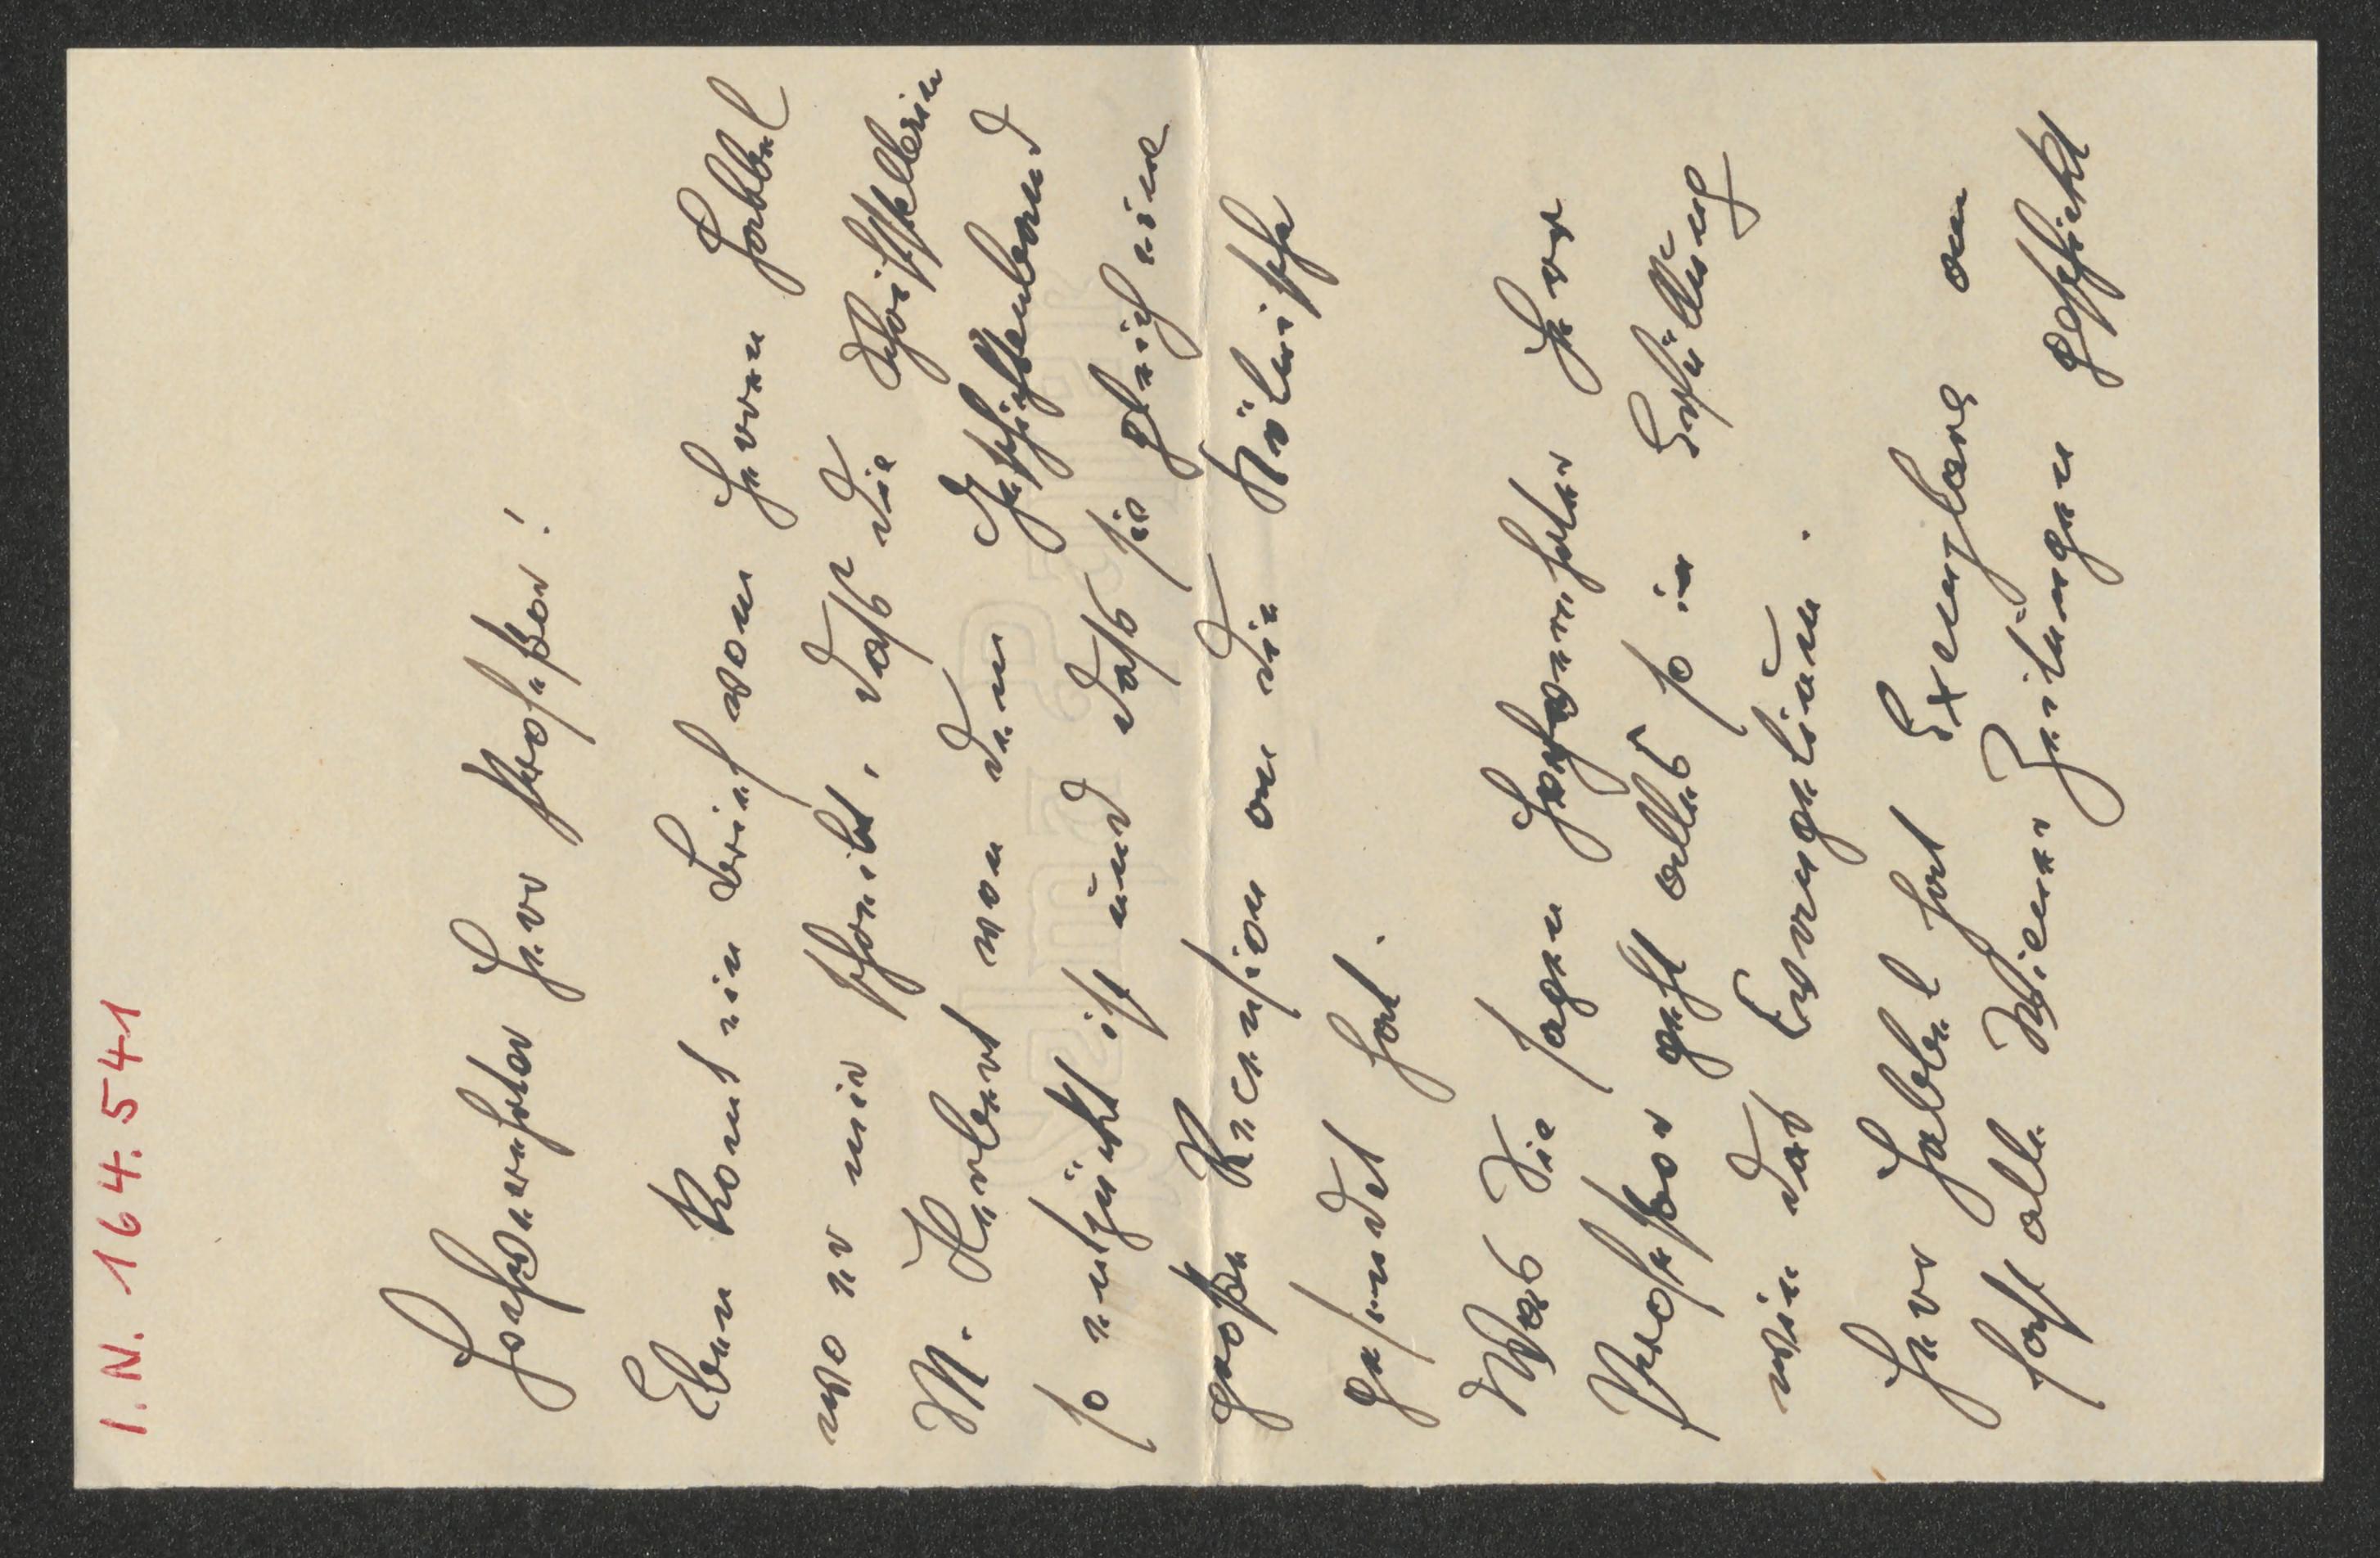 I.N. 164.541
Hochverehrter Herr Professor!
Eben komt ein Brief von Herrn Habbel
wo er mir schreibt, daß die Schriftstellerin
M. Herbert von dem Geschichtenband
so entzückt ist und daß sie gleich eine
große Recension an die Kölnische
gesendet hat.
Was Sie sagen Hochverehrter Herr
Professor geht alles so in Erfüllung
wie das Evangelium.
Herr Habbel hat Exemplare an
fast alle Wiener Zeitungen geschickt